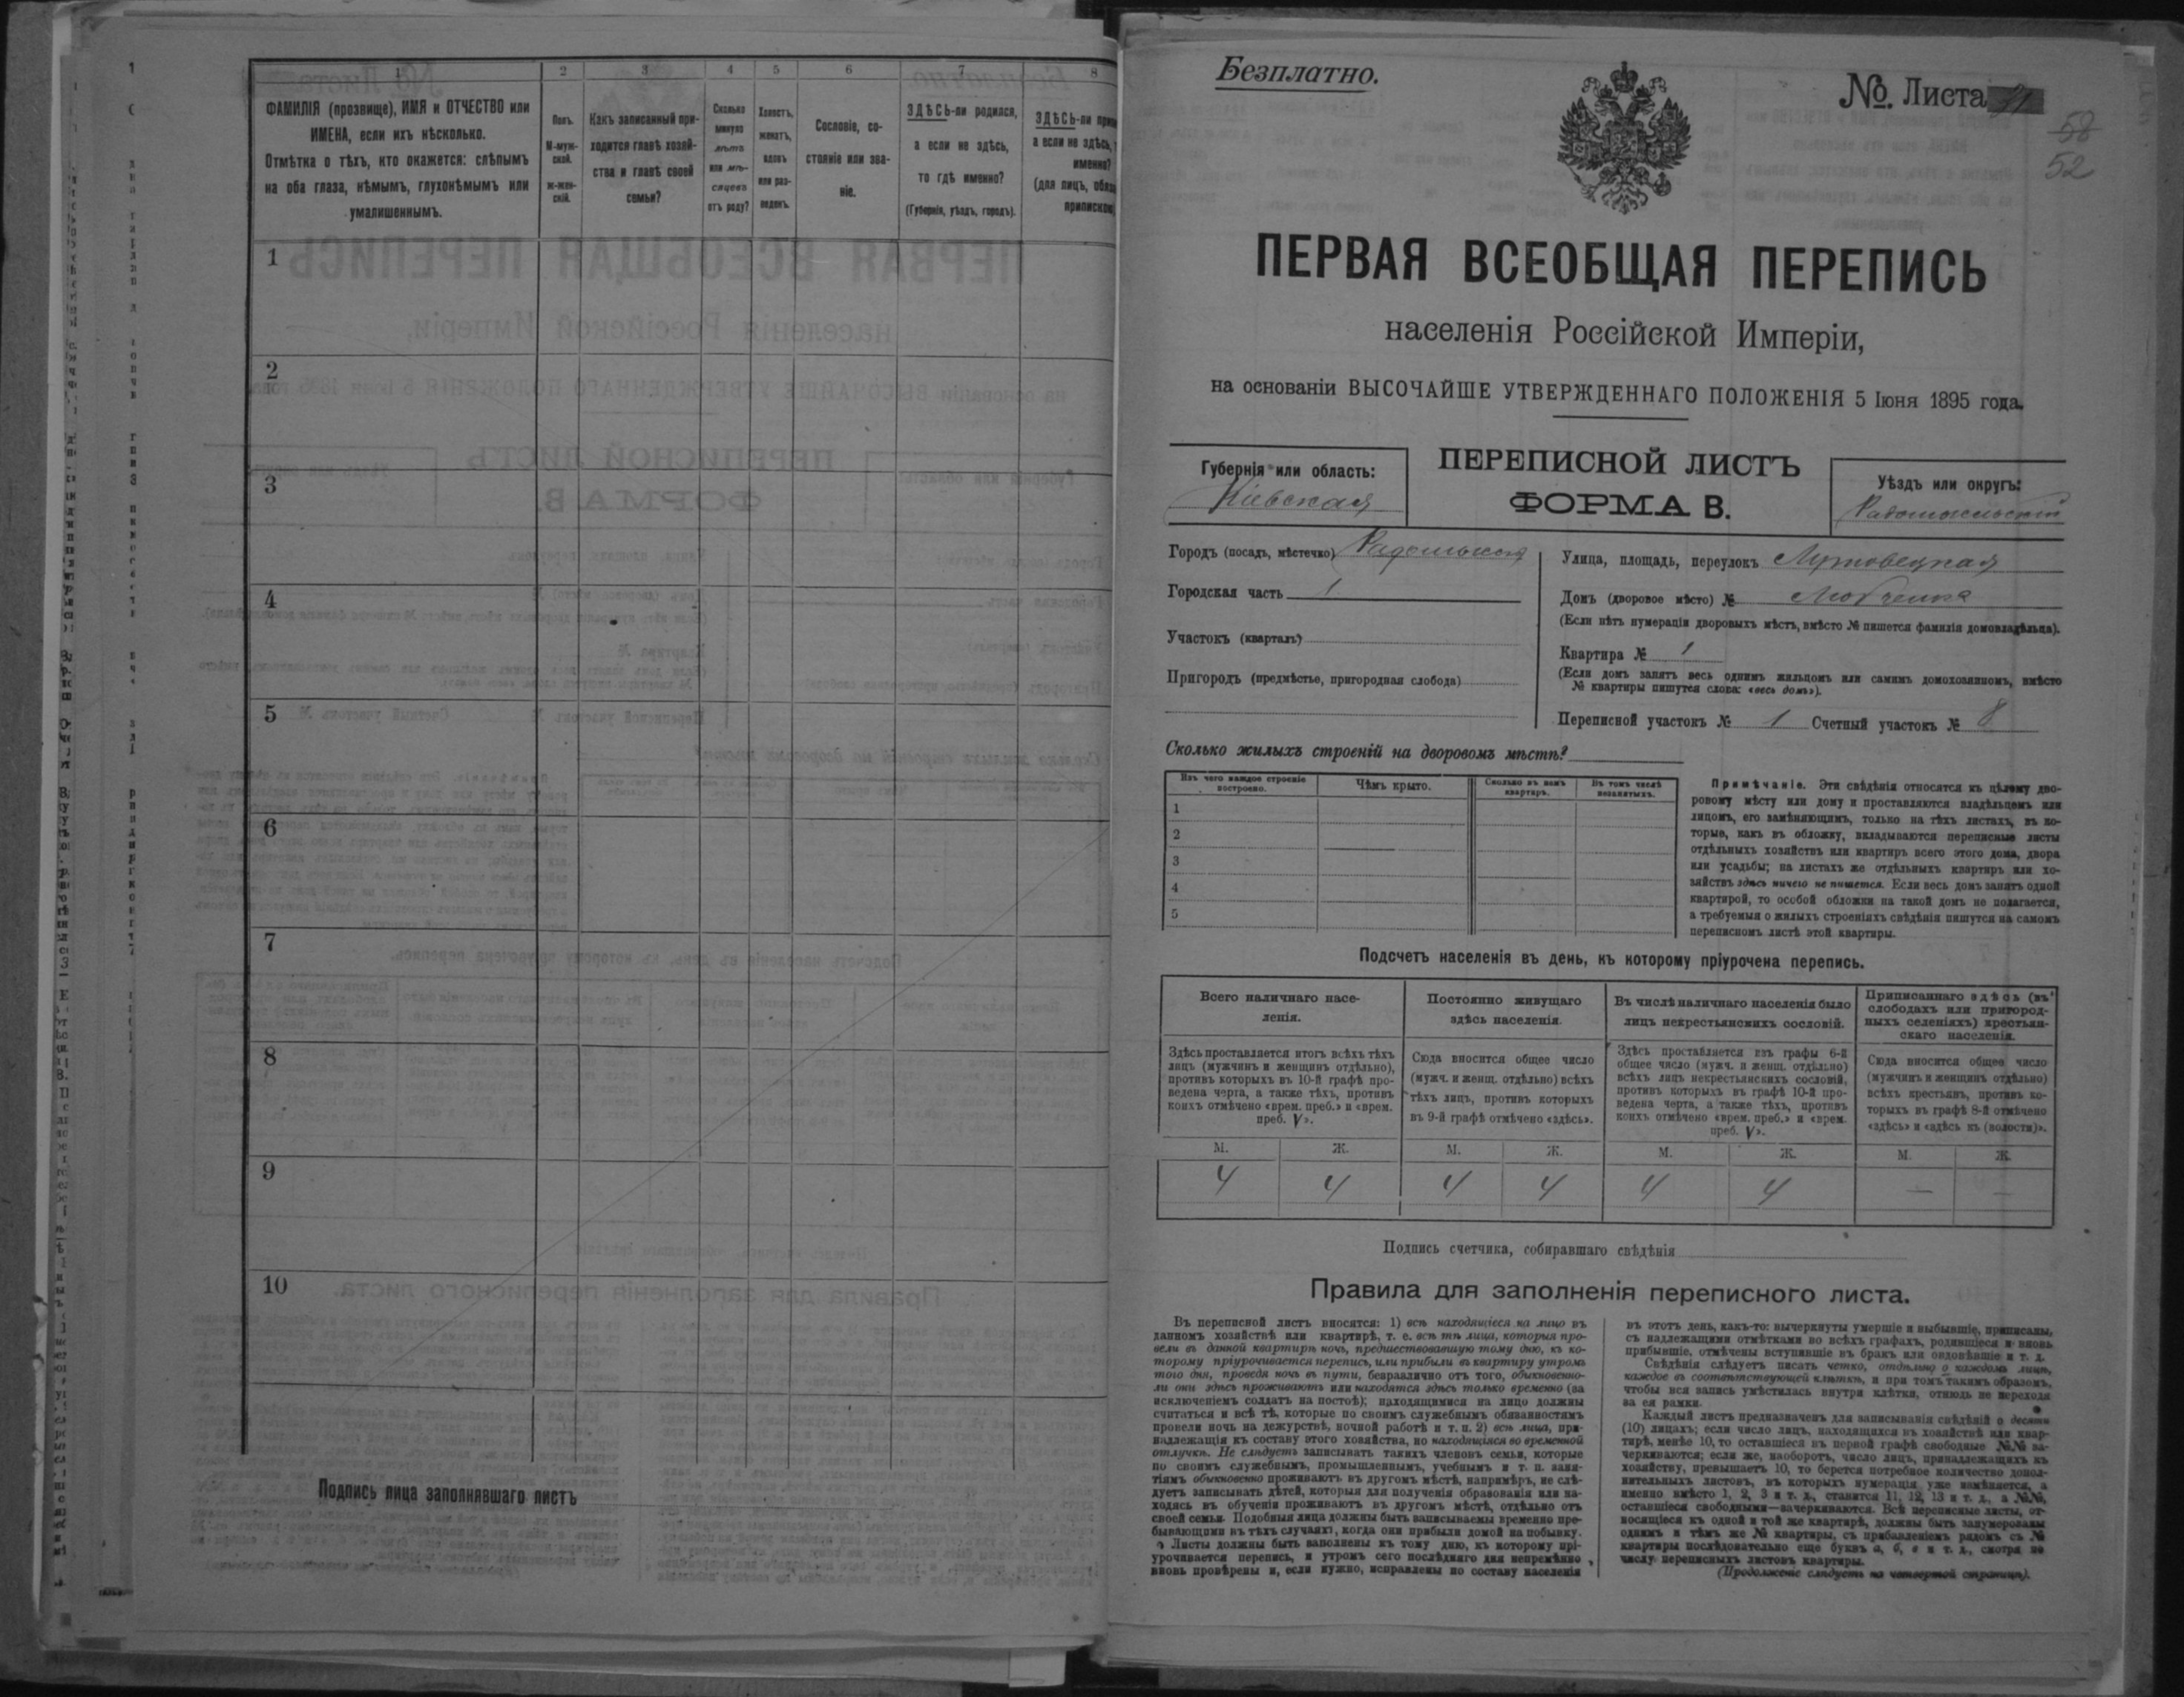 1
2
3
4
5
6
7
8
ФАМИЛІЯ (прозвище), ИМЯ и ОТЧЕСТВО или
ИМЕНА, если ихъ нѣсколько.
Отмѣтка о тѣхъ, кто окажется: слѣпымъ
на оба глаза, нѣмымъ, глухонѣмымъ или
умалишеннымъ.
Полъ.
М-муж-
ской.
ж-жен-
скій.
Какъ записанный при-
ходится главѣ хозяй-
ства и главѣ своей
семьи?
Сколько
минуло
лѣтъ
или мѣ-
сяцевъ
отъ роду?
Холостъ,
женатъ,
вдовъ
или раз-
веденъ.
Сословіе, со-
стояніе или зва-
ніе.
ЗДѢСЬ-ли родился,
а если не здѣсь,
то гдѣ именно?
(Губернія, уѣздъ, городъ).
ЗДѢСЬ-ли
а если не здѣсь,
именно?
(для лицъ,
1
2
3
4
5
6
7
8
9
10
Подпись лица заполнявшаго листъ
Безплатно.
№. Листа
58
52
ПЕРВАЯ ВСЕОБЩАЯ ПЕРЕПИСЬ
населенія Россійской Имперіи,
на основаніи ВЫСОЧАЙШЕ УТВЕРЖДЕННАГО ПОЛОЖЕНІЯ 5 Іюня 1895 года.
Губернія или область:
Кіевская
ПЕРЕПИСНОЙ ЛИСТЪ
ФОРМА В.
Уѣздъ или округъ:
Радомысльскій
Городъ (посадъ, мѣстечко) Радомысль
Городская часть 1
Участокъ (кварталъ)
Пригородъ (предмѣстье, пригородная слобода)
Улица, площадь, переулокъ
Домъ (дворовое мѣсто) № Любченка
(Если нѣтъ нумераціи дворовыхъ мѣстъ, вмѣсто № пишется фамилія домовладѣльца).
Квартира № 1
(Если домъ занятъ весь однимъ жильцомъ или самимъ домохозяиномъ, вмѣсто
№ квартиры пишутся слова: «весь домъ»).
Переписной участокъ № 1 Счетный участокъ № 8
Сколько жилыхъ строеній на дворовомъ мѣстѣ?
Изъ чего каждое строеніе
построено.
Чѣмъ крыто.
Сколько въ немъ
квартиръ.
Въ томъ числѣ
незанятыхъ.
1
2
3
4
5
Примѣчаніе. Эти свѣдѣнія относятся къ цѣлому дво-
ровому мѣсту или дому и проставляются владѣльцемъ или
лицомъ, его замѣняющимъ, только на тѣхъ листахъ, въ ко-
торые, какъ въ обложку, вкладываются переписные листы
отдѣльныхъ хозяйствъ или квартиръ всего этого дома, двора
или усадьбы; на листахъ же отдѣльныхъ квартиръ или хо-
зяйствъ здѣсь ничего не пишется. Если весь домъ занятъ одной
квартирой, то особой обложки на такой домъ не полагается,
а требуемыя о жилыхъ строеніяхъ свѣдѣнія пишутся на самомъ
переписномъ листѣ этой квартиры.
Подсчетъ населенія въ день, къ которому пріурочена перепись.
Всего наличнаго насе-
ленія.
Постоянно живущаго
здѣсь населенія.
Въ числѣ наличнаго населенія было
лицъ некрестьянскихъ сословій.
Приписаннаго здѣсь (въ
слободахъ или пригород-
ныхъ селеніяхъ) крестьян-
скаго населенія.
Здѣсь проставляется итогъ всѣхъ тѣхъ
лицъ (мужчинъ и женщинъ отдѣльно),
противъ которыхъ въ 10-й графѣ про-
ведена черта, а также тѣхъ, противъ
коихъ отмѣчено «врем. преб.» и «врем.
преб. V».
Сюда вносится общее число
(мужч. и женщ. отдѣльно) всѣхъ
тѣхъ лицъ, противъ которыхъ
въ 9-й графѣ отмѣчено «здѣсь».
Здѣсь проставляется изъ графы 6-й
общее число (мужч. и женщ. отдѣльно)
всѣхъ лицъ некрестьянскихъ сословій,
противъ которыхъ въ графѣ 10-й про-
ведена черта, а также тѣхъ, противъ
коихъ отмѣчено «врем. преб.» и «врем.
преб. V».
Сюда вносится общее число
(мужчинъ и женщинъ отдѣльно)
всѣхъ крестьянъ, противъ ко-
торыхъ въ графѣ 8-й отмѣчено
«здѣсь» и «здѣсь къ (волости)».
М. Ж. М. Ж. М. Ж. М. Ж.
4 4 4 4 4 4 — —
Подпись счетчика, собиравшаго свѣдѣнія
Правила для заполненія переписного листа.
Въ переписной листъ вносятся: 1) всѣ находящіеся на лицо въ
данномъ хозяйствѣ или квартирѣ, т. е. всѣ тѣ лица, которыя про-
вели въ данной квартирѣ ночь, предшествовавшую тому дню, къ ко-
торому пріурочивается перепись, или прибыли въ квартиру утромъ
того дня, проведя ночь въ пути, безразлично отъ того, обыкновенно-
ли они здѣсь проживаютъ или находятся здѣсь только временно (за
исключеніемъ солдатъ на постоѣ); находящимися на лицо должны
считаться и всѣ тѣ, которые по своимъ служебнымъ обязанностямъ
провели ночь на дежурствѣ, ночной работѣ и т. п. 2) всѣ лица, при-
надлежащія къ составу этого хозяйства, но находящіяся во временной
отлучкѣ. Не слѣдуетъ записывать такихъ членовъ семьи, которые
по своимъ служебнымъ, промышленнымъ, учебнымъ и т. п. заня-
тіямъ обыкновенно проживаютъ въ другомъ мѣстѣ, напримѣръ, не слѣ-
дуетъ записывать дѣтей, которыя для полученія образованія или на-
ходясь въ обученіи проживаютъ въ другомъ мѣстѣ, отдѣльно отъ
своей семьи. Подобныя лица должны быть записываемы временно пре-
бывающими въ тѣхъ случаяхъ, когда они прибыли домой на побывку.
Листы должны быть заполнены къ тому дню, къ которому прі-
урочивается перепись, и утромъ сего послѣдняго дня непремѣнно
вновь провѣрены и, если нужно, исправлены по составу населенія
въ этотъ день, какъ-то: вычеркнуты умершіе и выбывшіе, приписаны,
съ надлежащими отмѣтками во всѣхъ графахъ, родившіеся и вновь
прибывшіе, отмѣчены вступившіе въ бракъ или овдовѣвшіе и т. д.
Свѣдѣнія слѣдуетъ писать четко, отдѣльно о каждомъ лицѣ,
каждое въ соотвѣтствующей клѣткѣ, и при томъ такимъ образомъ,
чтобы вся запись умѣстилась внутри клѣтки, отнюдь не переходя
за ея рамки.
Каждый листъ предназначенъ для записыванія свѣдѣній о десяти
(10) лицахъ; если число лицъ, находящихся въ хозяйствѣ или квар-
тирѣ, менѣе 10, то оставшіеся въ первой графѣ свободные №№ за-
черкиваются; если же, наоборотъ, число лицъ, принадлежащихъ къ
хозяйству, превышаетъ 10, то берется потребное количество допол-
нительныхъ листовъ, въ которыхъ нумерація уже измѣняется, а
именно вмѣсто 1, 2, 3 и т. д., ставится 11, 12, 13 и т. д., а №№,
оставшіеся свободными—зачеркиваются. Всѣ переписные листы, от-
носящіеся къ одной и той же квартирѣ, должны быть занумерованы
однимъ и тѣмъ же № квартиры, съ прибавленіемъ рядомъ съ №
квартиры послѣдовательно еще буквъ а, б, в и т. д., смотря по
числу переписныхъ листовъ квартиры.
(Продолженіе слѣдуетъ на четвертой страницѣ).